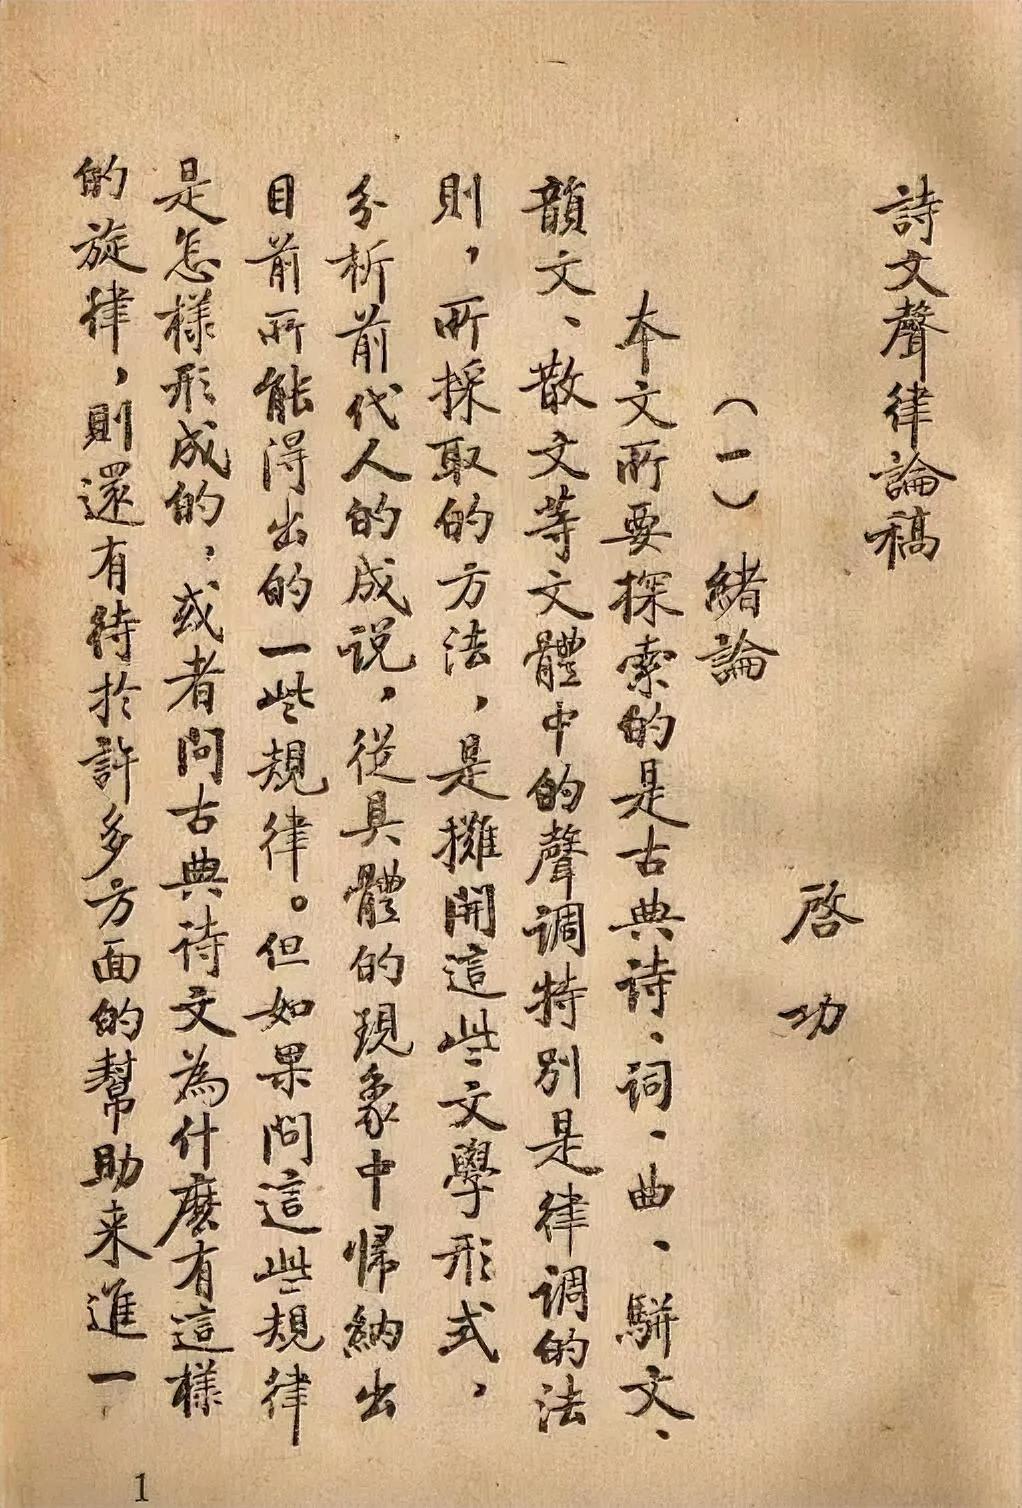 詩文聲律論稿
啓功
（一）緒論
本文所要探索的是古典詩、詞、曲、駢文、
韻文、散文等文體中的聲调特别是律调的法
則，所採取的方法，是攤開這些文學形式，
分析前代人的成说，從具體的現象中歸納出
目前所能得出的一些規律。但如果問這些規律
是怎樣形成的；或者問古典诗文為什麽有這樣
的旋律，則還有待於許多方面的幫助来進一
1